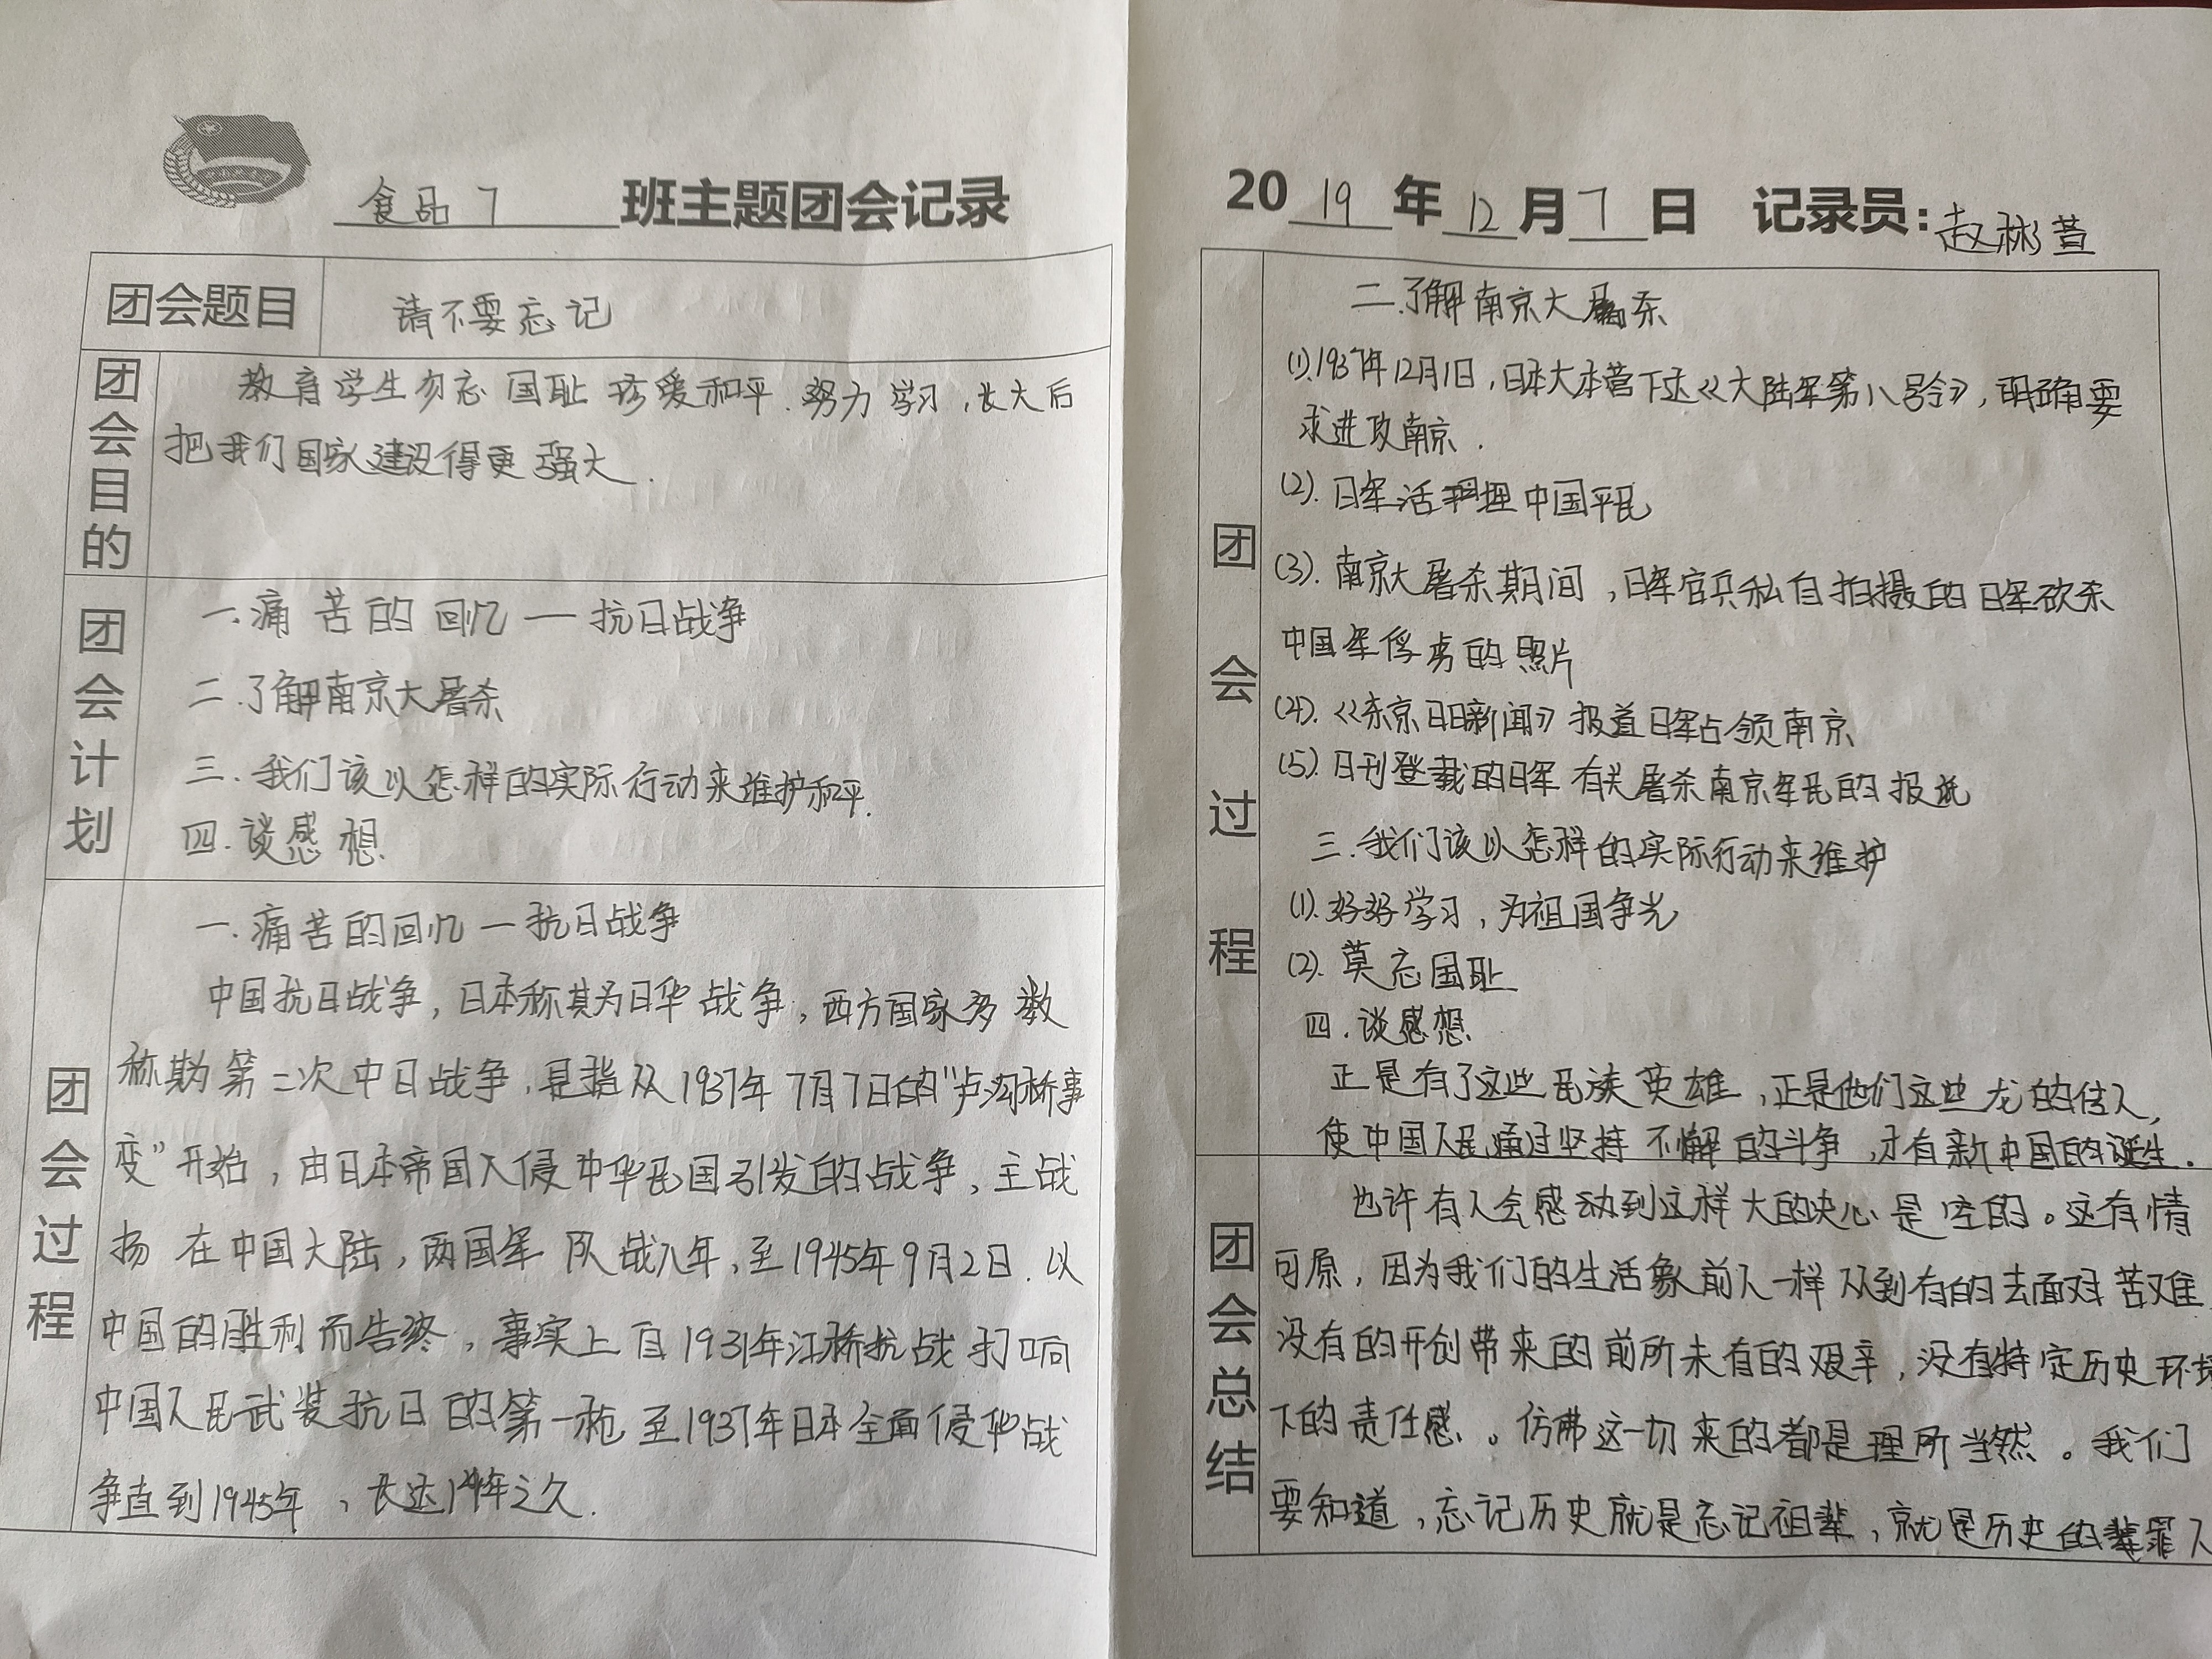 食品7班主题团会记录
团会题目 请不要忘记
团会目的
教育学生勿忘国耻 珍爱和平.努力学习,长大后
把我们国家建设得更强大.
团会计划
一.痛苦的回忆 — 抗日战争
二.了解南京大屠杀
三.我们该以怎样的实际行动来维护和平.
四.谈感想
团会过程
一.痛苦的回忆 — 抗日战争
中国抗日战争,日本称其为日华战争,西方国家多数
称其为第二次中日战争,是指从1937年7月7日的“卢沟桥事
变”开始,由日本帝国入侵中华民国引发的战争,主战
扬在中国大陆,两国军队战八年,至1945年9月2日.以
中国的胜利而告终,事实上自1931年江桥抗战打响
中国人民武装抗日的第一枪至1937年日本全面侵华战
争直到1945年,长达14年之久.
2019年12月7日 记录员:赵彬萱
团会过程
二.了解南京大屠杀
(1).1937年12月1日,日本大本营下达《大陆军第八号令》,明确要
求进攻南京.
(2).日军活埋中国平民
(3).南京大屠杀期间,日军官兵私自拍摄的日军砍杀
中国军俘虏的照片
(4).《东京日日新闻》报道日军占领南京
(5).日刊登载的日军有关屠杀南京军民的报
三.我们该以怎样的实际行动来维护
(1).好好学习,为祖国争光
(2).莫忘国耻
四.谈感想
正是有了这些民族英雄,正是他们这些龙的传人,
使中国人民通过坚持不懈的斗争,才有新中国的诞生.
团会总结
也许有人会感动到这样大的决心是空的。这有情
可原,因为我们的生活象前人一样从到有的去面对苦难
没有的开创带来的前所未有的艰辛,没有特定历史环境
下的责任感。仿佛这一切来的都是理所当然。我们
要知道,忘记历史就是忘记祖辈,就是历史的罪人